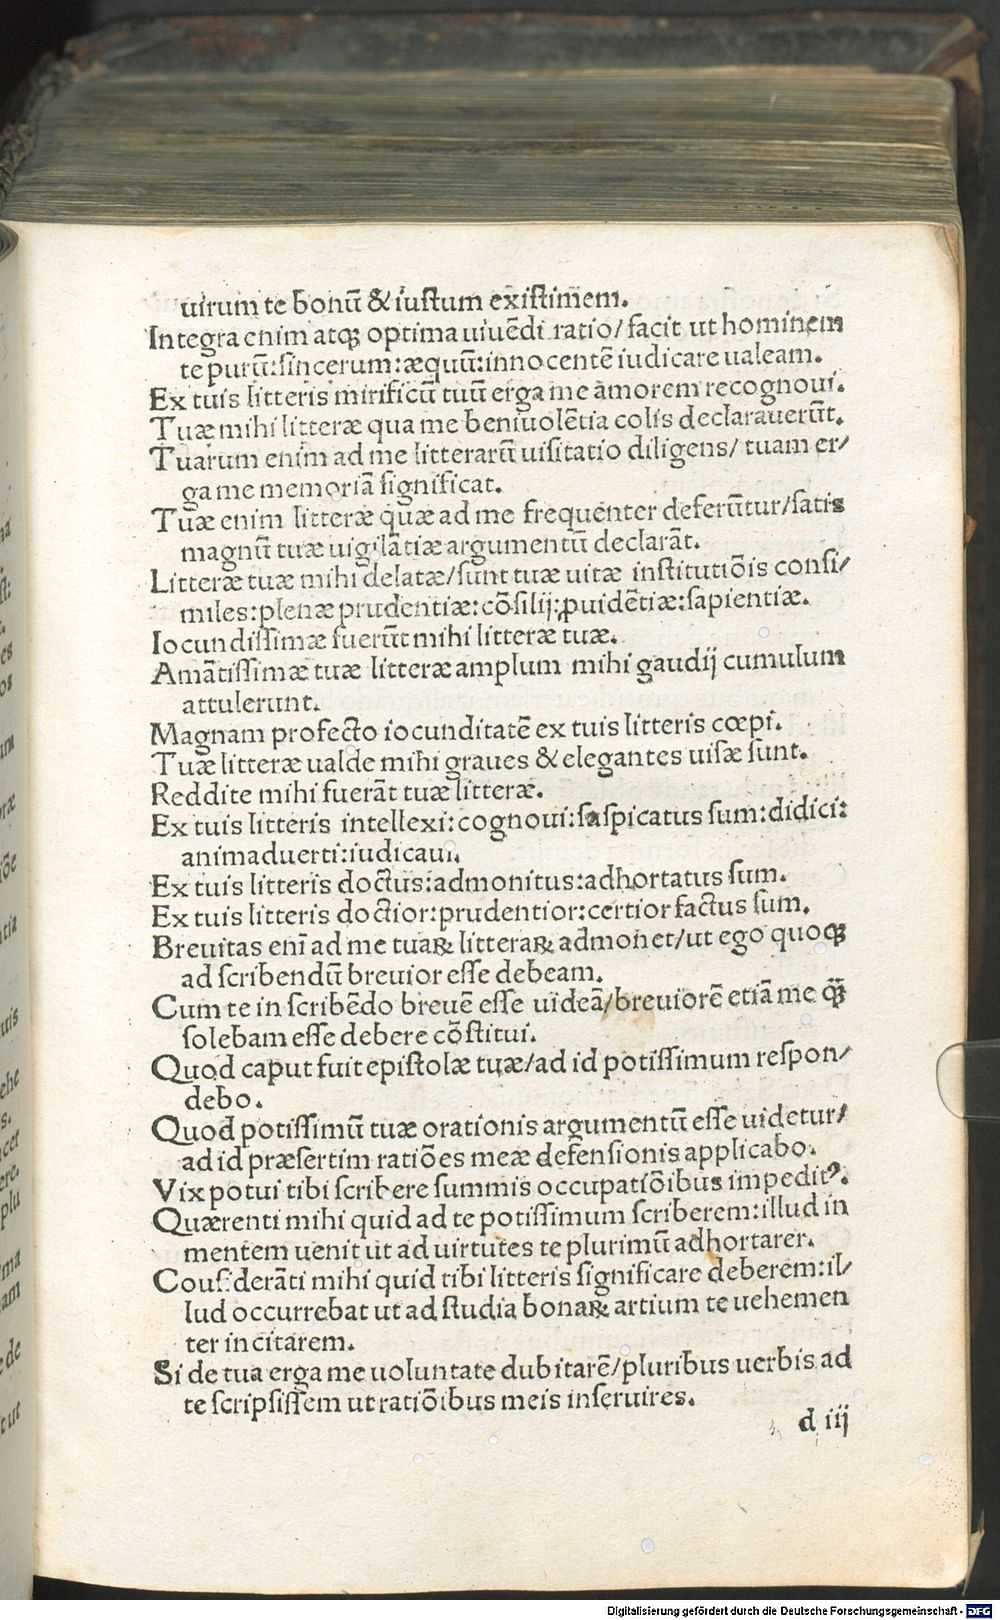 uirum te bonū & iustum existimem.
Integra enim atqꝫ optima uiuēdi ratio/facit ut hominem
te purū:sincerum:æquū:innocentē iudicare ualeam.
Ex tuis litteris mirificū tuū erga me amorem recognoui.
Tuæ mihi litteræ qua me beniuolētia colis declarauerūt.
Tuarum enim ad me litterarū uisitatio diligens/ tuam er/
ga me memoriā significat.
Tuæ enim litteræ quæ ad me frequenter deferūtur/satis
magnū tuæ uigilātiæ argumentū declarāt.
Litteræ tuæ mihi delatæ/sunt tuæ uitæ institutiōis consi/
miles:plenæ prudentiæ:cōsilij:ꝓuidētiæ:sapientiæ.
Iocundissimæ fuerūt mihi litteræ tuæ.
Amātissimæ tuæ litteræ amplum mihi gaudij cumulum
attulerunt.
Magnam profecto iocunditatē ex tuis litteris cœpi.
Tuæ litteræ ualde mihi graues & elegantes uisæ sunt.
Reddite mihi fuerāt tuæ litteræ.
Ex tuis litteris intellexi:cognoui:suspicatus sum:didici:
animaduerti:iudicaui.
Ex tuis litteris doctus:admonitus:adhortatus sum.
Ex tuis litteris doctior:prudentior:certior factus sum.
Breuitas enī ad me tuaꝝ litteraꝝ admonet/ut ego quoqꝫ
ad scribendū breuior esse debeam.
Cum te in scribēdo breuē esse uideā/breuiorē etiā me qꝫ̄
solebam esse debere cōstitui.
Quod caput fuit epistolæ tuæ/ad id potissimum respon/
debo.
Quod potissimū tuæ orationis argumentū esse uidetur/
ad id præsertim ratiōes meæ defensionis applicabo.
Vix potui tibi scribere summis occupatiōibus impeditꝰ.
Quærenti mihi quid ad te potissimum scriberem:illud in
mentem uenit ut ad uirtutes te plurimū adhortarer.
Cousiderāti mihi quid tibi litteris significare deberem:il/
lud occurrebat ut ad studia bonaꝝ artium te uehemen
ter incitarem.
Si de tua erga me uoluntate dubitarē/pluribus uerbis ad
te scripsissem ut ratiōibus meis inseruires.
d iij
Digitalisierung gefördert durch die Deutsche Forschungsgemeinschaft - DFG